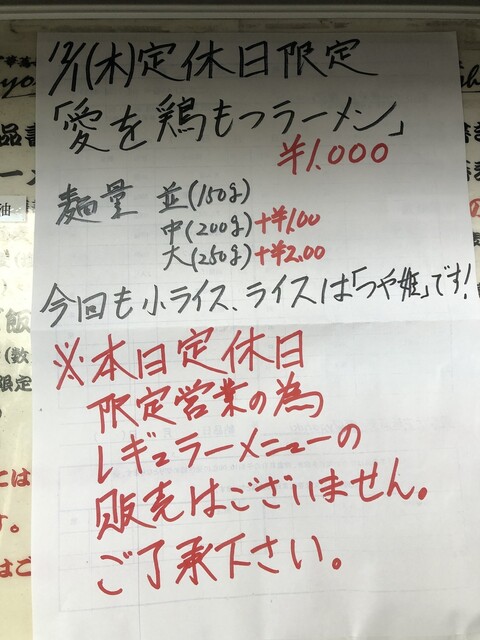 12/1(木)定休日限定
「愛を鶏もつラーメン」
¥1.000
麺量 並(150g)
中(200g)+¥1.00
大(250g)+¥2.00
今回も小ライス、ライスは「つや姫」です!
※本日定休日
限定営業の為
レギュラーメニューの
販売はございません。
ご了承下さい。